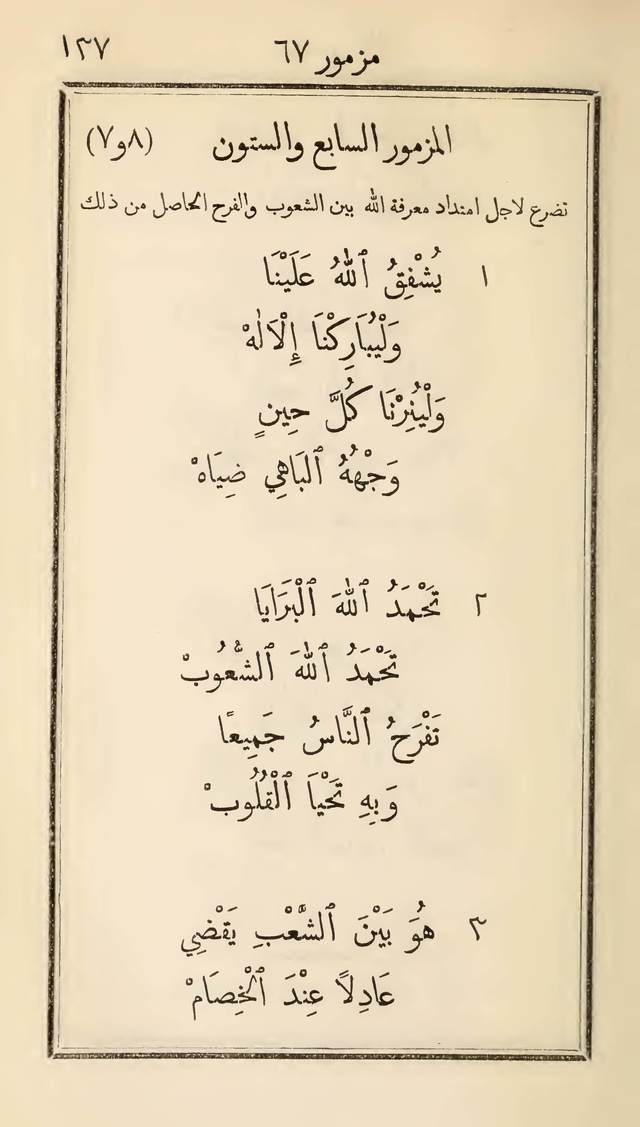 مزمور ٦٧ ١٣٧
المزمور السابع والستون (٨و٧)
تضرع لاجل امتداد معرفة الله بين الشعوب والفرح الحاصل من ذلك
١ يُشْفِقُ ٱللهُ عَلَيْنَا
وَلْيُبَارِكْنَا إِلْاَلٰهْ
وَلْيُنِرْنَا كُلَّ حِينٍ
وَجْهُهُ ٱلبَاهِي ضِيَاهْ
٢ تَحْمَدُ ٱللهَ ٱلْبَرَايَا
تَحْمَدُ ٱللهَ ٱلشُّعُوبْ
تَفْرَحُ ٱلنَّاسُ جَمِيعًا
وَبِهِ تَحْيَا ٱلْقُلُوبْ
٣ هُوَ بَيْنَ ٱلشَّعْبِ يَقْضِي
عَادِلاً عِنْدَ ٱلْخِصَامْ